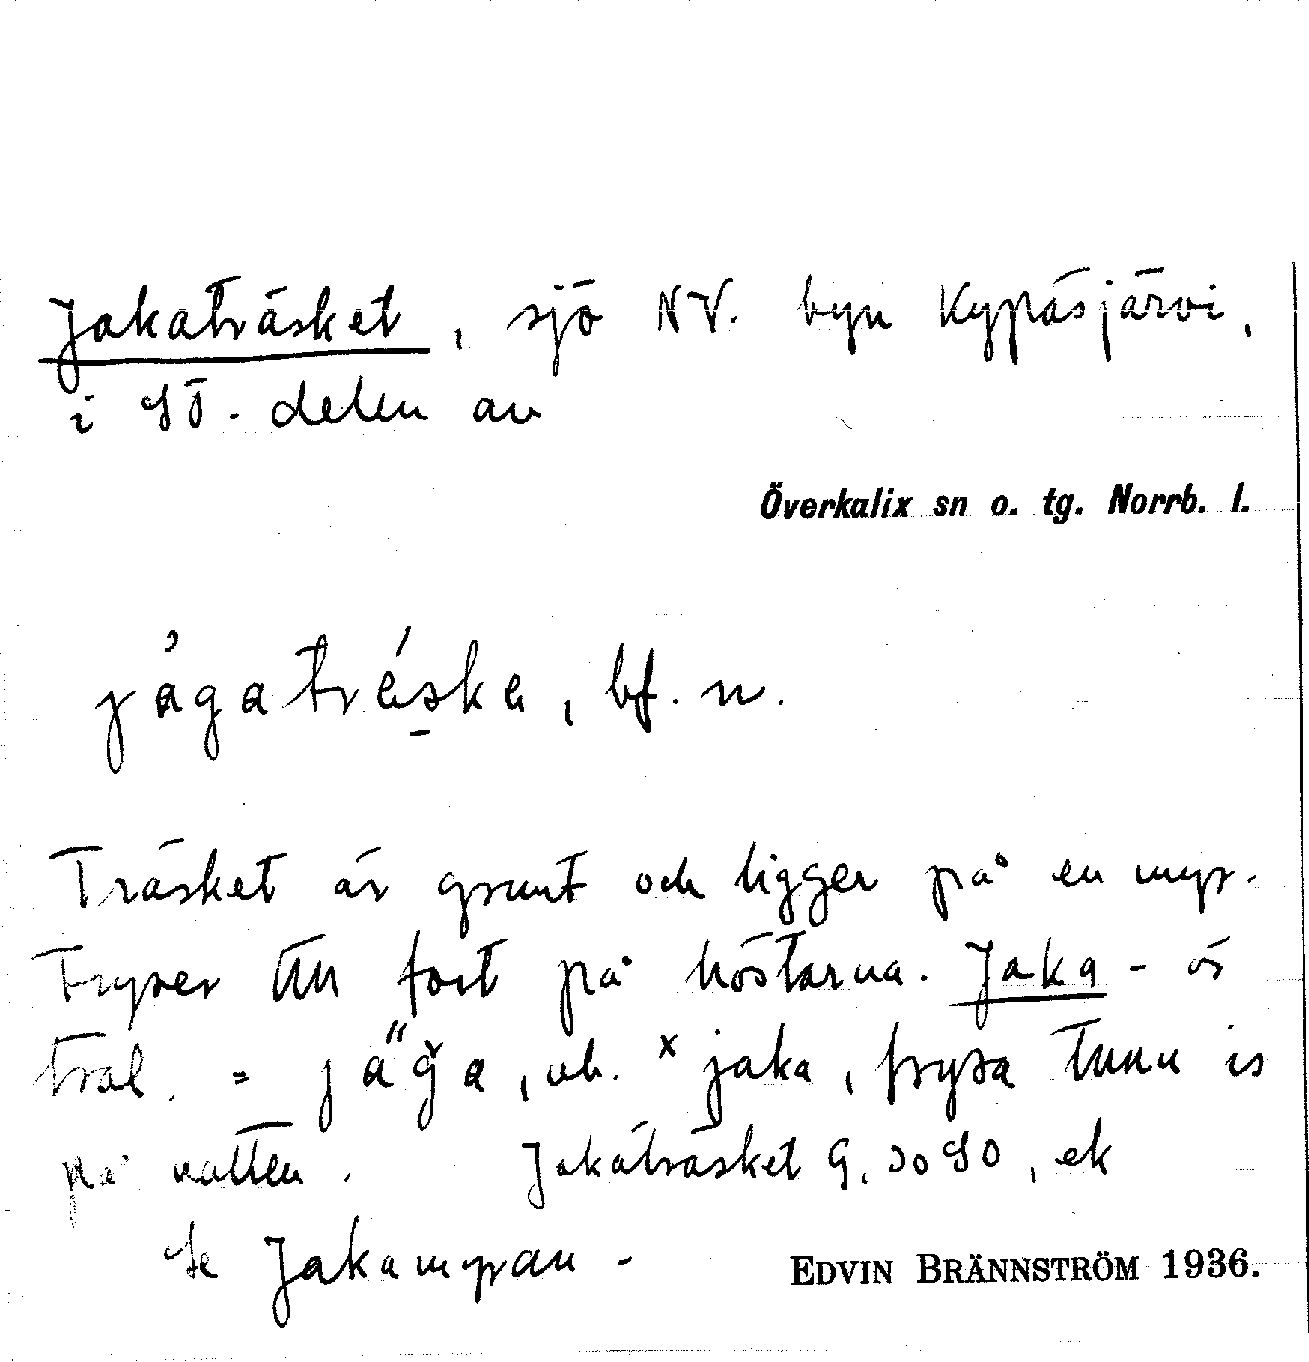 Jakaträsket, sjö NV. byn Kypåsjärvi,
i SÖ. delen av
Överkalix sn o. tg. Norrb. l.
jågatréska, bf. n.
Träsket är grunt och ligger på en myr.
Fryser till fort på höstarna. Jaka- är
trol. = jaǧa, vb. ˣjaka, frysa tunn is
på vatten. Jakaträsket G. SO, ek
Se Jakamyran -
EDVIN BRÄNNSTRÖM 1936.